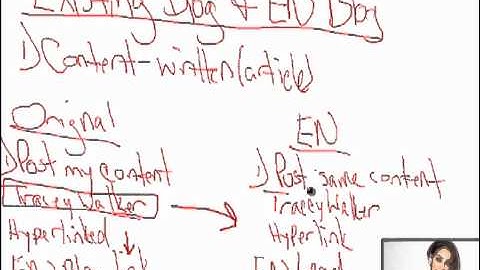 Existing Blog + EN Blog
1) Content - written (article)
Original
1) Post my content
Tracey Walker
Hyperlinked
EN
1) Post same content
Tracey Walker
Hyperlink
EN